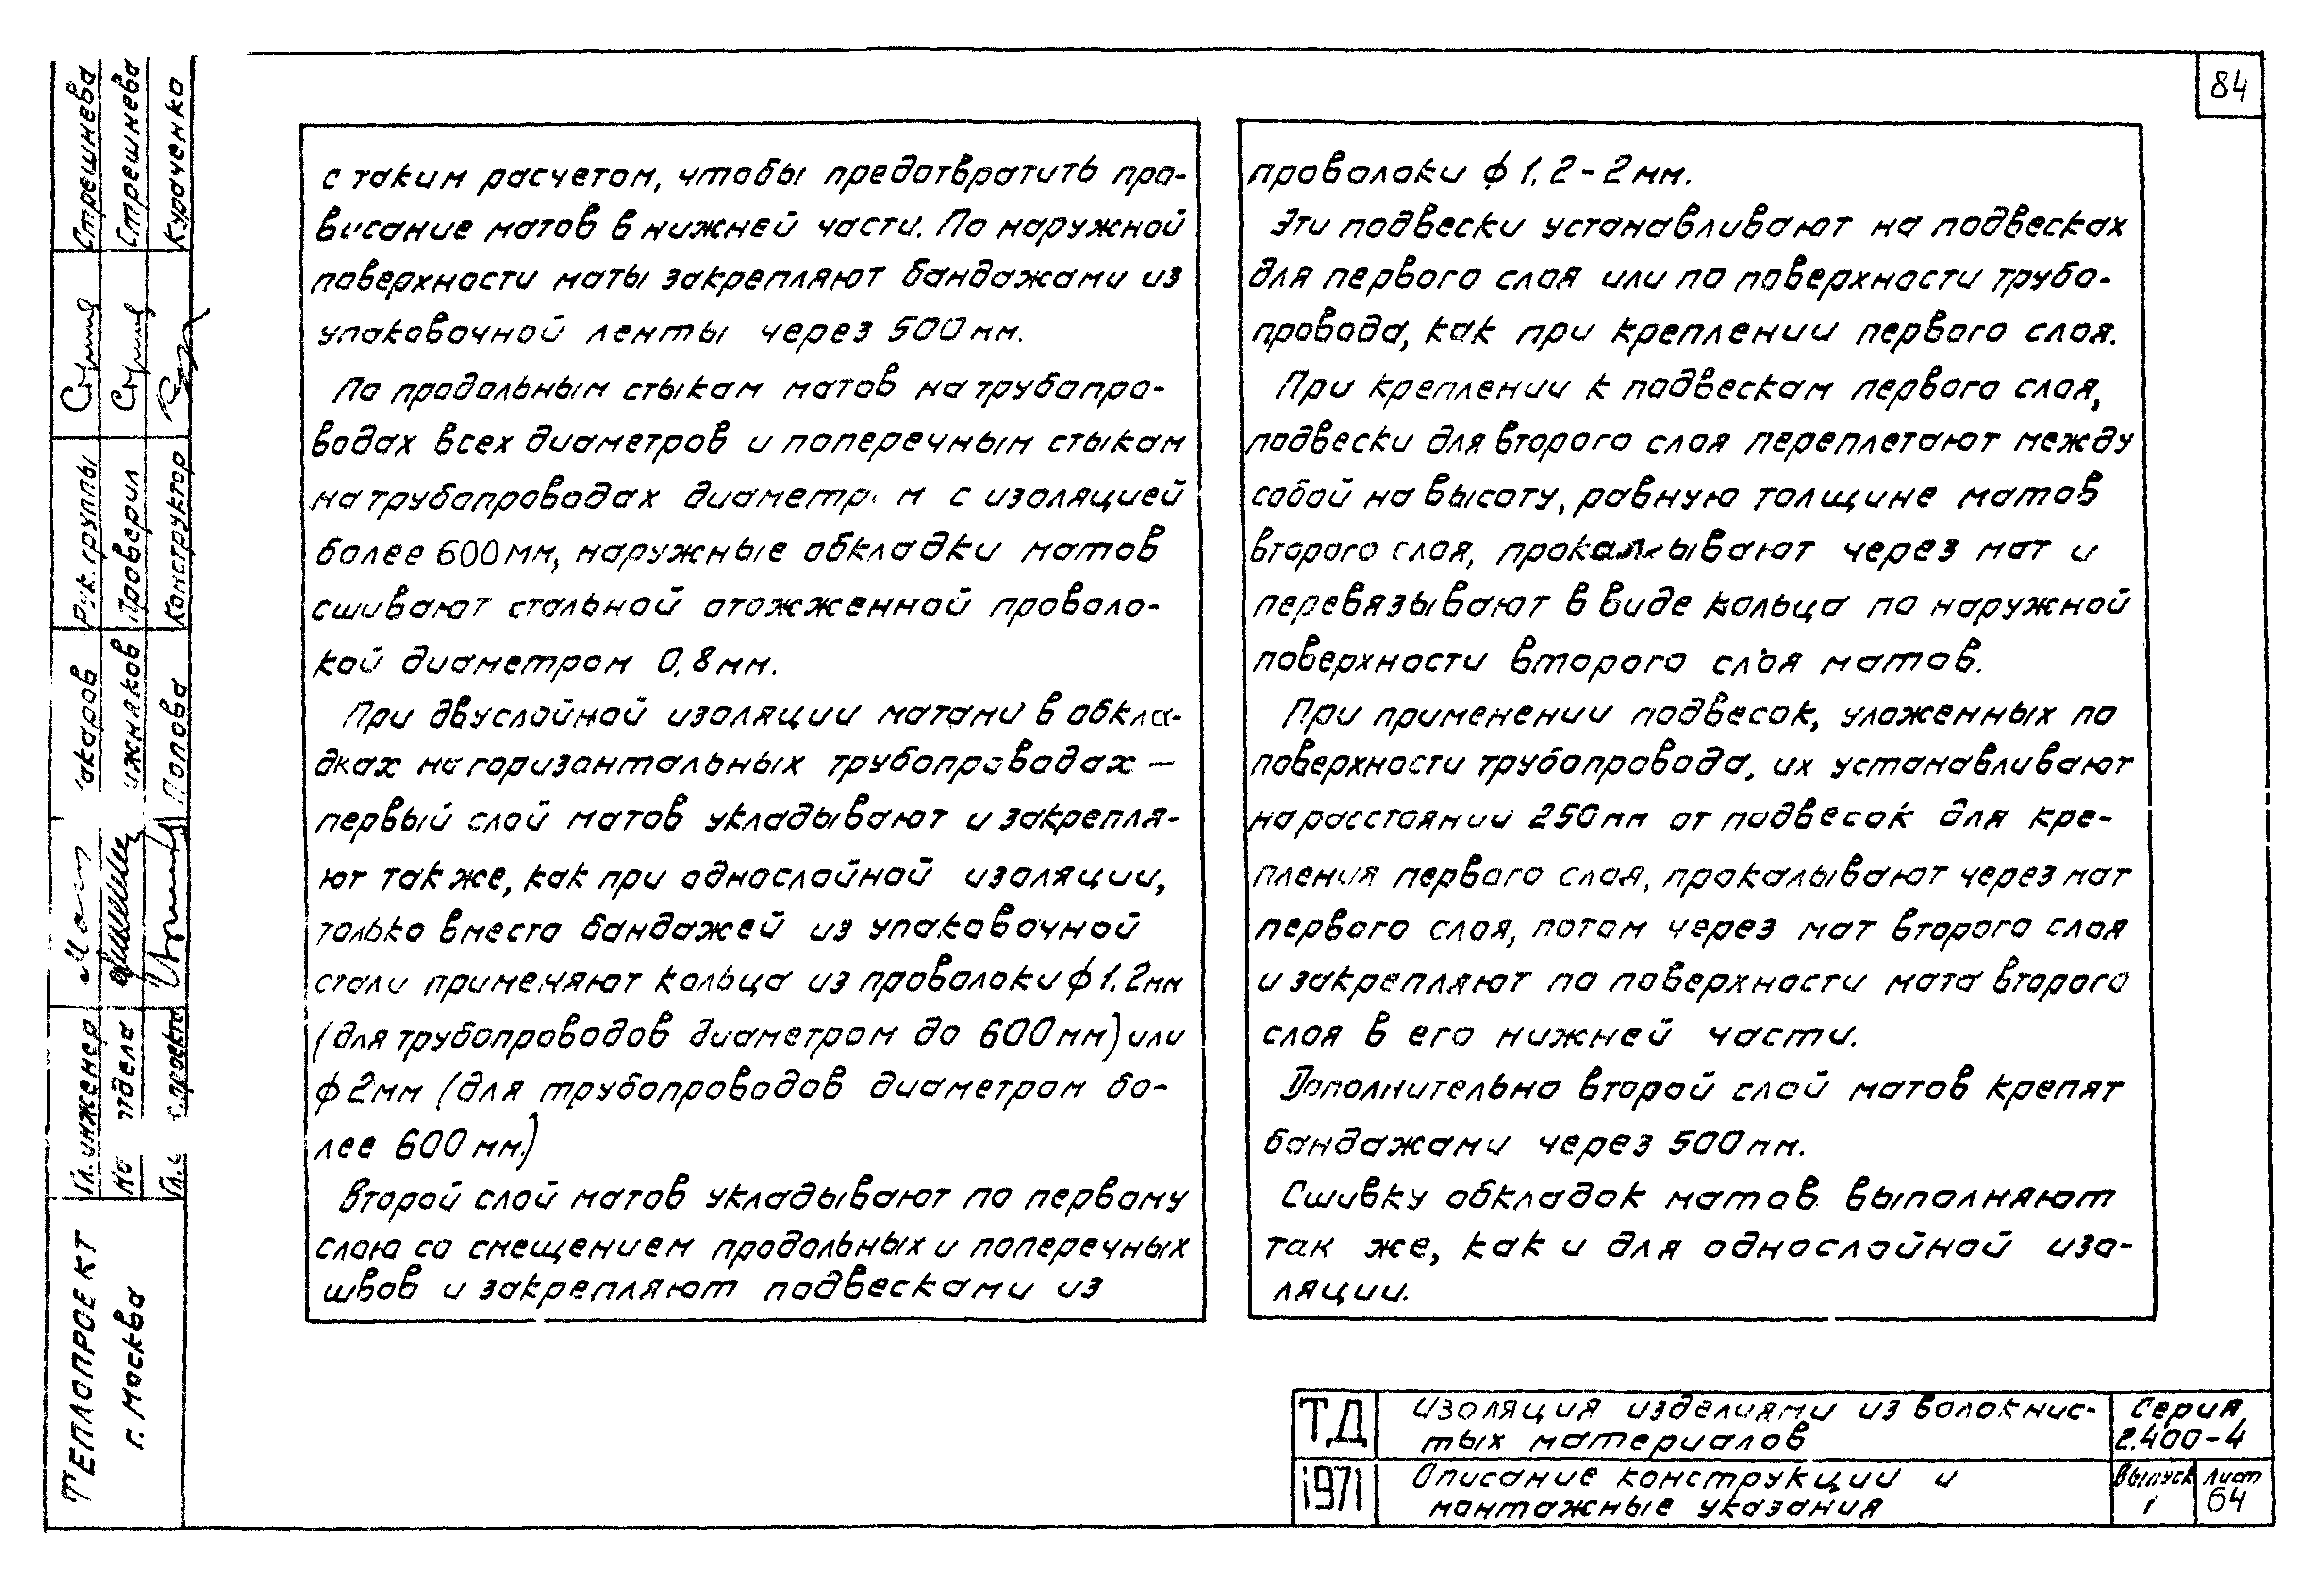 84
с таким расчетом, чтобы предотвратить про-
висание матов в нижней части. По наружной
поверхности маты закрепляют бандажами из
упаковочной ленты через 500мм.
По продольным стыкам матов на трубопро-
водах всех диаметров и поперечным стыкам
на трубопроводах с изоляцией
более 600мм, наружные обкладки матов
сшивают стальной отожженной проволо-
кой диаметром 0,8мм.
При двуслойной изоляции матами в обкла-
дках на горизонтальных трубопроводах —
первый слой матов укладывают и закрепля-
ют так же, как при однослойной изоляции,
только вместо бандажей из упаковочной
стали применяют кольца из проволоки ϕ 1,2мм
(для трубопроводов диаметром до 600мм) или
ϕ 2мм (для трубопроводов диаметром бо-
лее 600мм.)
Второй слой матов укладывают по первому
слою со смещением продольных и поперечных
швов и закрепляют подвесками из
проволоки ϕ 1,2-2мм.
Эти подвески устанавливают на подвесках
для первого слоя или по поверхности трубо-
провода, как при креплении первого слоя.
При креплении к подвескам первого слоя,
подвески для второго слоя переплетают между
собой на высоту, равную толщине матов
второго слоя, прокалывают через мат и
перевязывают в виде кольца по наружной
поверхности второго слоя матов.
При применении подвесок, уложенных по
поверхности трубопровода, их устанавливают
на расстоянии 250мм от подвесок для кре-
пления первого слоя, прокалывают через мат
первого слоя, потом через мат второго слоя
и закрепляют по поверхности мата второго
слоя в его нижней части.
Дополнительно второй слой матов крепят
бандажами через 500мм.
Сшивку обкладок матов выполняют
так же, как и для однослойной изо-
ляции.
ТД
Изоляция изделиями из волокнис-
тых материалов
Серия
2.400-4
1971
Описание конструкции и
монтажные указания
Выпуск
1
Лист
64
Теплопроект
г. Москва
Гл. инженер
Рук. группы Стрешнева
Проверил Стрешнева
Попова Конструктор Кураченко